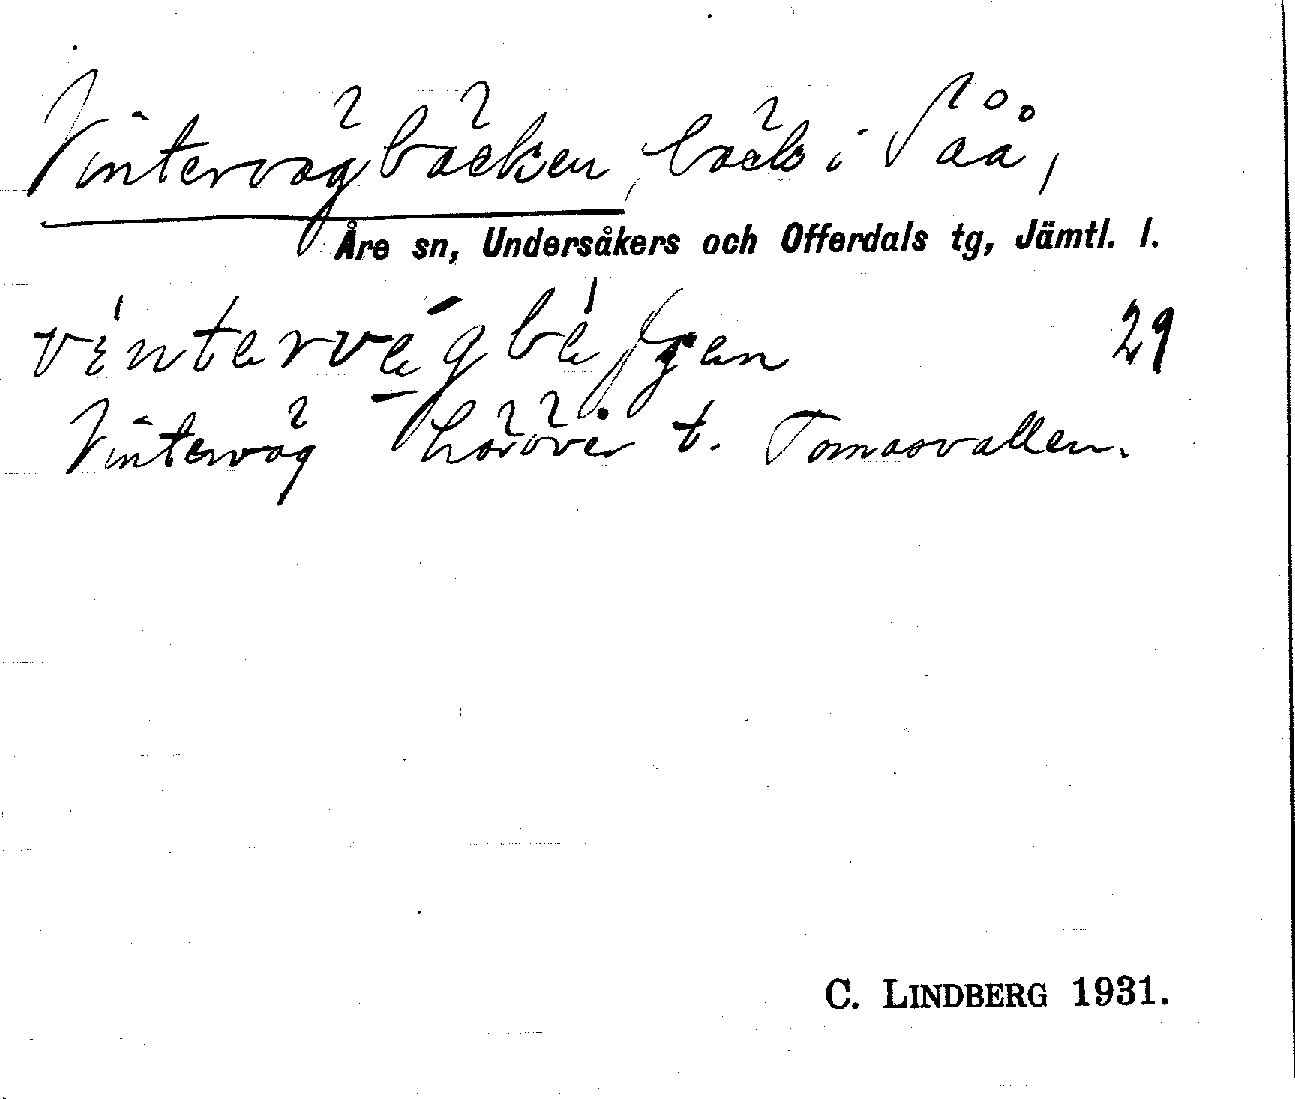 Vintervägbäcken, bäck i Såå,
Åre sn, Undersåkers och Offerdals tg, Jämtl. l.
29
Vinterväg häröver t. Tomasvallen.
C. LINDBERG 1931.